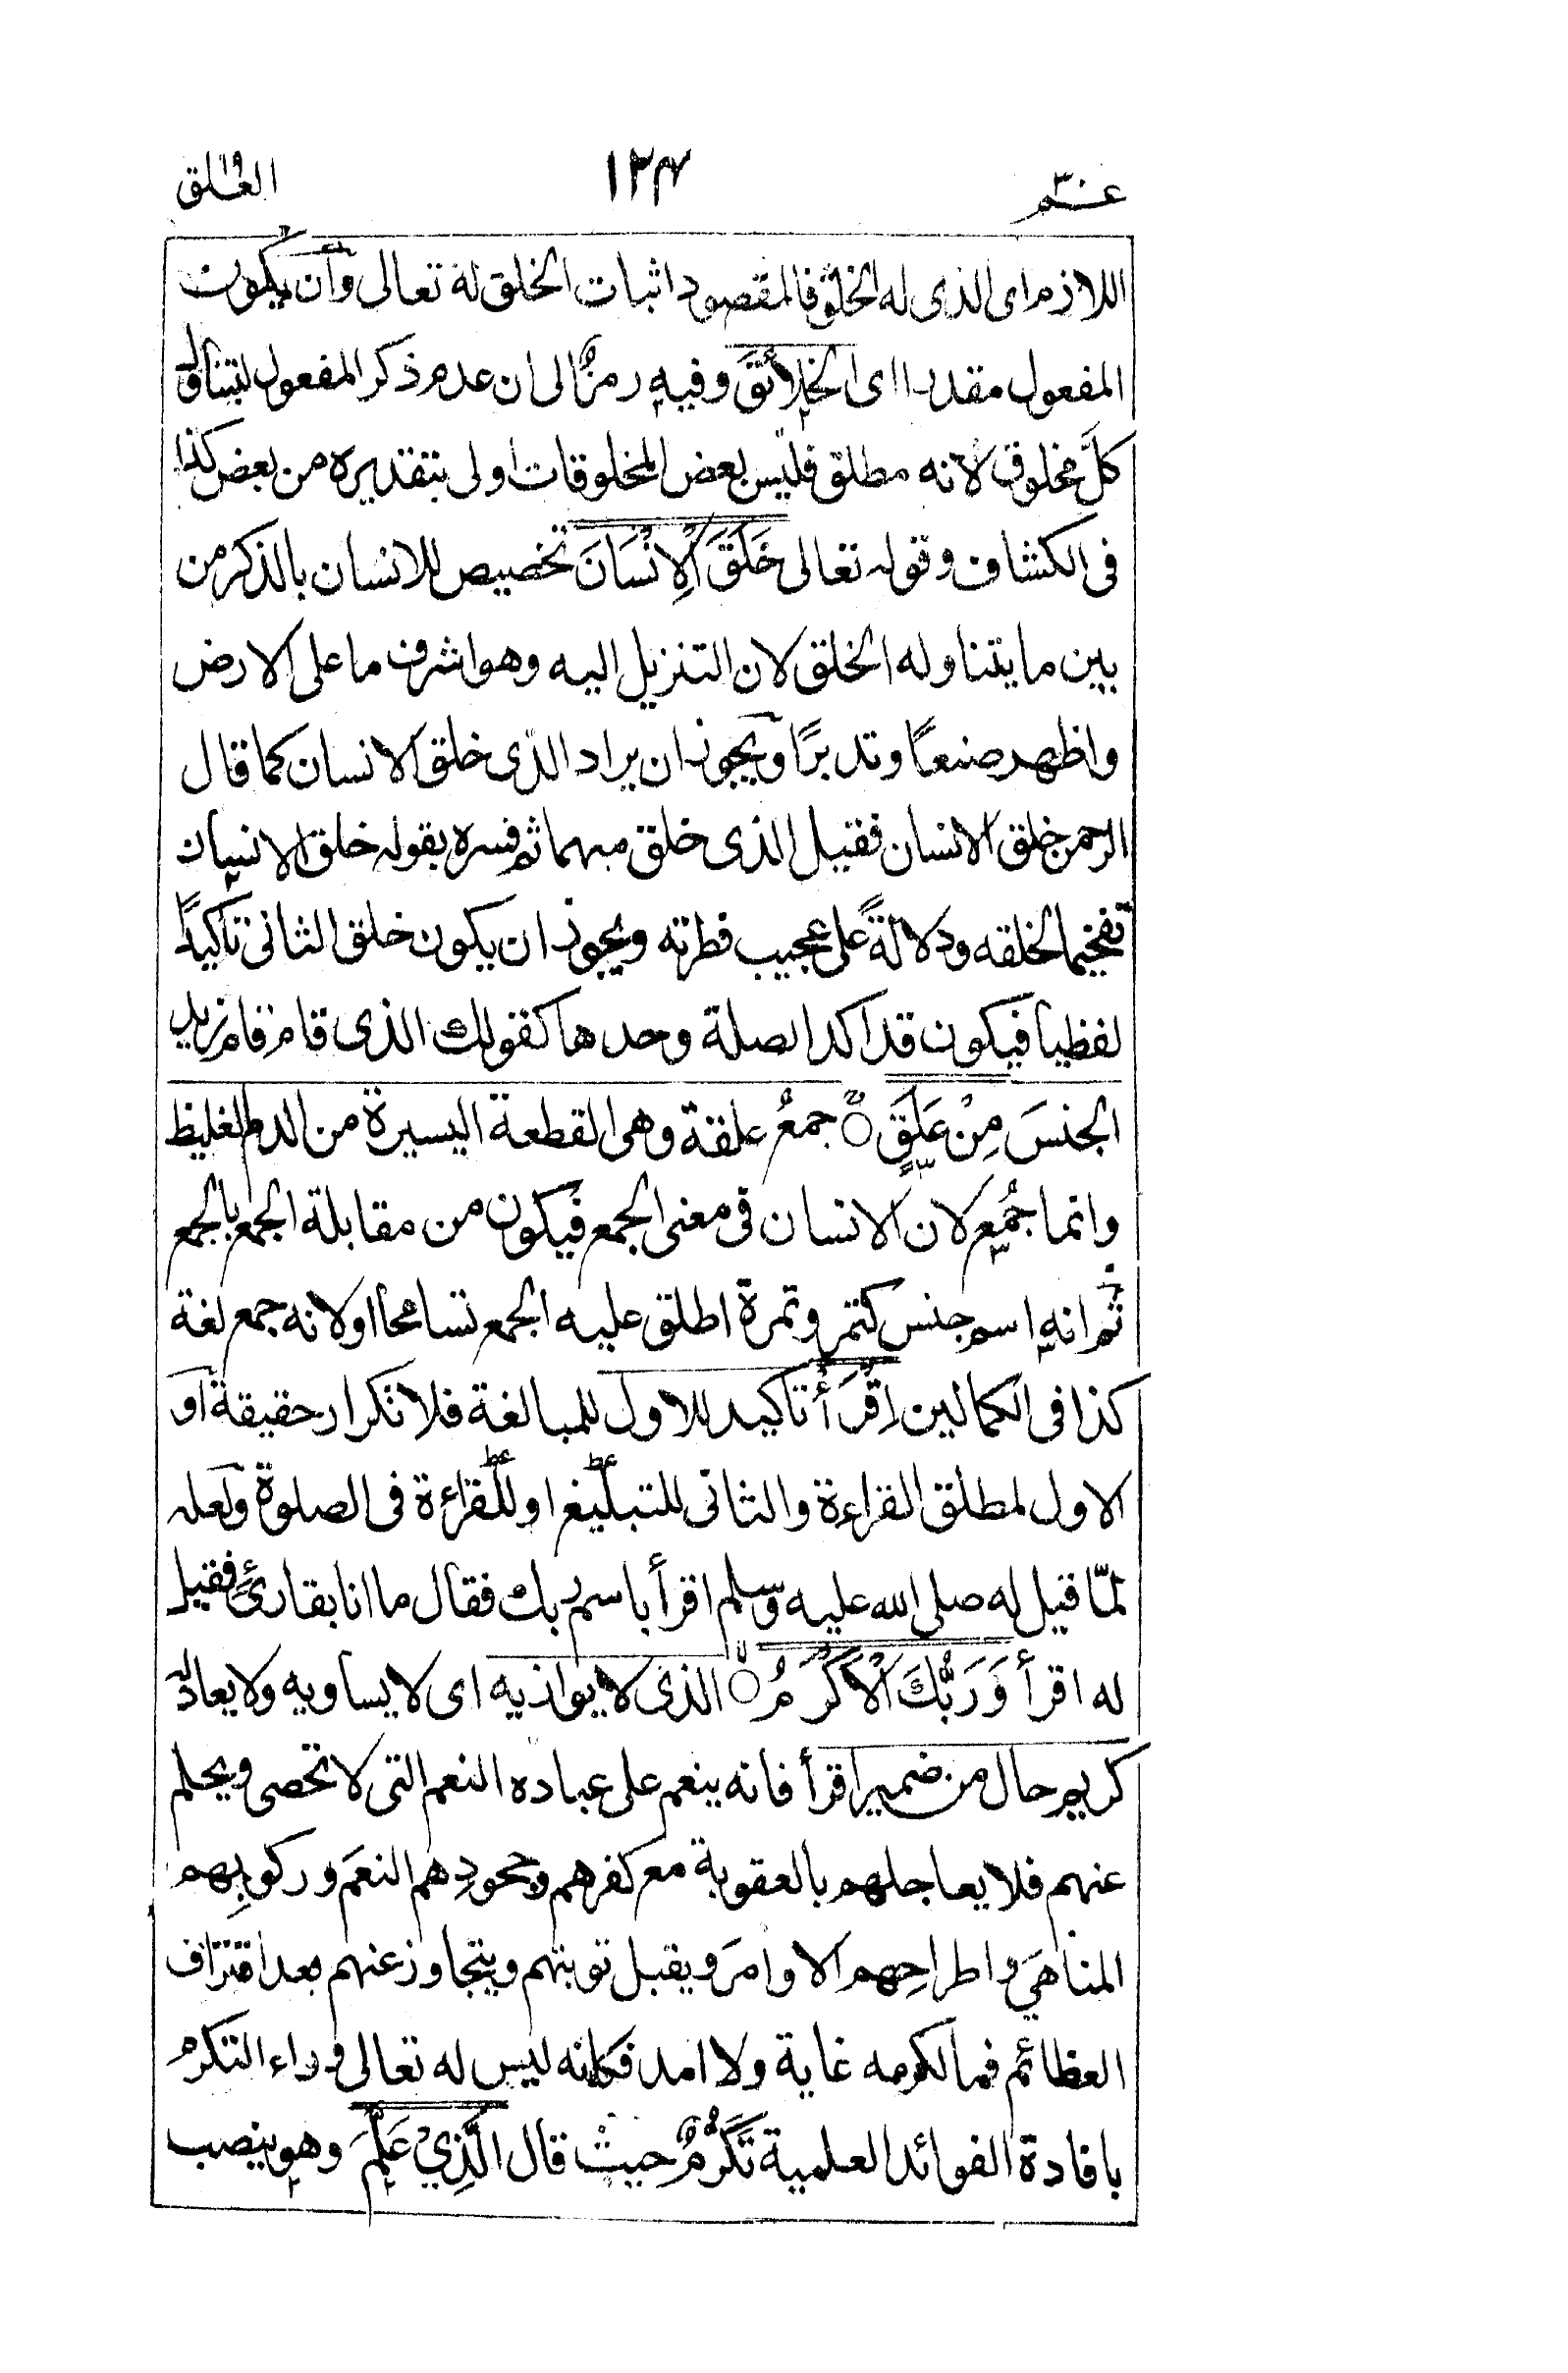 عـمّ ١٢٤ العلق
اللازم اى الذى له الخلق فالمقصود اثبات الخلق له تعالى وان يكون
المفعول مقدرا اى الخلائقَ وفيه رمزٌ الى ان عدم ذكر المفعول ليتناول
كلَّ مخلوق لانه مطلق فليس بعض المخلوقات اولى بتقديره من بعض كذا
فى الكشاف وقوله تعالى خَلَقَ الْاِنْسَانَ تخصيص للانسان بالذكر من
بين ما يتناوله الخلق لان التنزيل اليه وهو اشرف ما على الارض
واظهر صنعًا وتدبرًا ويجوز ان يراد الذى خلق الانسان كما قال
الرحمن خلق الانسان فقيل الذى خلق مبهما ثم فسره بقوله خلق الانسان
تفخيما لخلقه ودلالةً على عجيب فطرته ويجوز ان يكون خلق الثانى تأكيدًا
لفظيا فيكون قد اكد الصلة وحدها كقولك الذى قام قام زيد
الجنسَ مِنْ عَلَقٍ جمعُ علقة وهى القطعة اليسيرة من الدم الغليظ
وانما جُمِع لان الانسان فى معنى الجمع فيكون من مقابلة الجمع بالجمع
ثم انه اسم جنس كتمر وتمرة اطلق عليه الجمع تسامحا اولانه جمع لغة
كذا فى الكمالين اِقْرَأْ تاكيد للاول للمبالغة فلا تكرار حقيقة او
الاول لمطلق القراءة والثانى للتبليغ او للقراءة فى الصلوة ولعله
لمّا قيل له صلى الله عليه وسلم اقرأ باسم ربك فقال ما انا بقارئ فقيل
له اقرأ وَرَبُّكَ الْاَكْرَمُ الذى لا يوازيه اى لا يساويه ولا يعادله
كريم حال من ضمير اقرأ فانه ينعم على عباده النعم التى لا تحصى ويحلم
عنهم فلا يعاجلهم بالعقوبة مع كفرهم وجحودِهم النعمَ وركوبِهم
المناهَي واطراحِهم الاوامرَ ويقبل توبتهم ويتجاوز عنهم بعد اقتراف
العظائم فما لكرمه غاية ولا امد فكانه ليس له تعالى وراء التكرم
بافادة الفوائد العلمية تَكَرُّمٌ حيث قال الَّذِيْ عَلَّمَ وهو ينصب